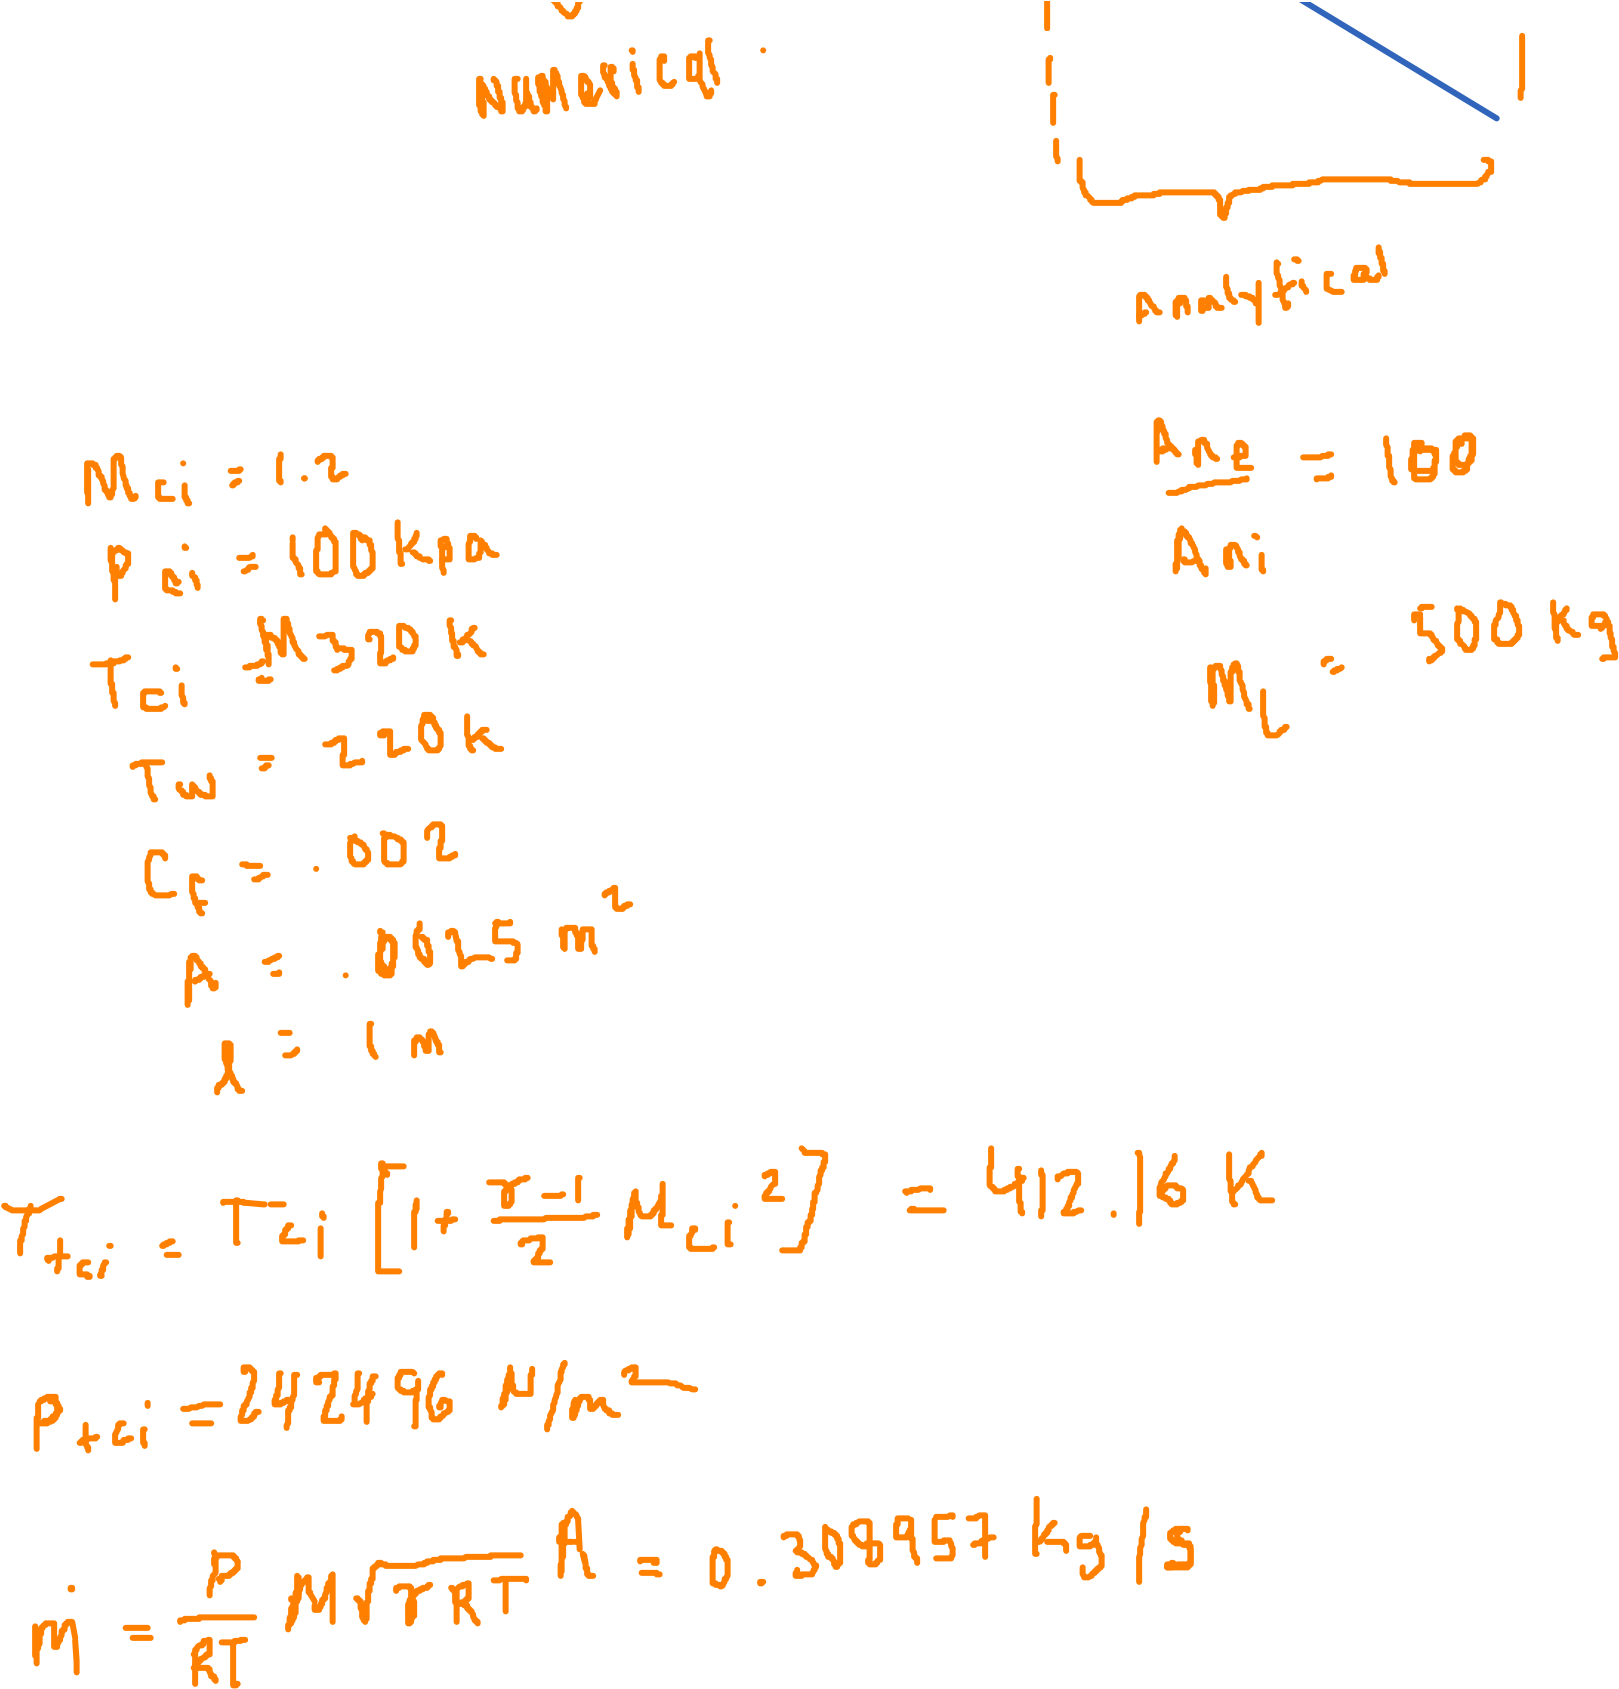 Numerical.
Analytical
M_ci = 1.2
P_ci = 100 kpa
T_ci = 320 K
T_w = 220 K
C_f = .002
A = .0625 m²
l = 1 m
A_ne / A_ni = 100
M_L = 500 kg
T_tci = T_ci [1 + (γ-1)/2 M_ci²] = 412.16 K
P_tci = 242496 N/m²
ṁ = P/RT M√γRT A = 0.308957 kg/s